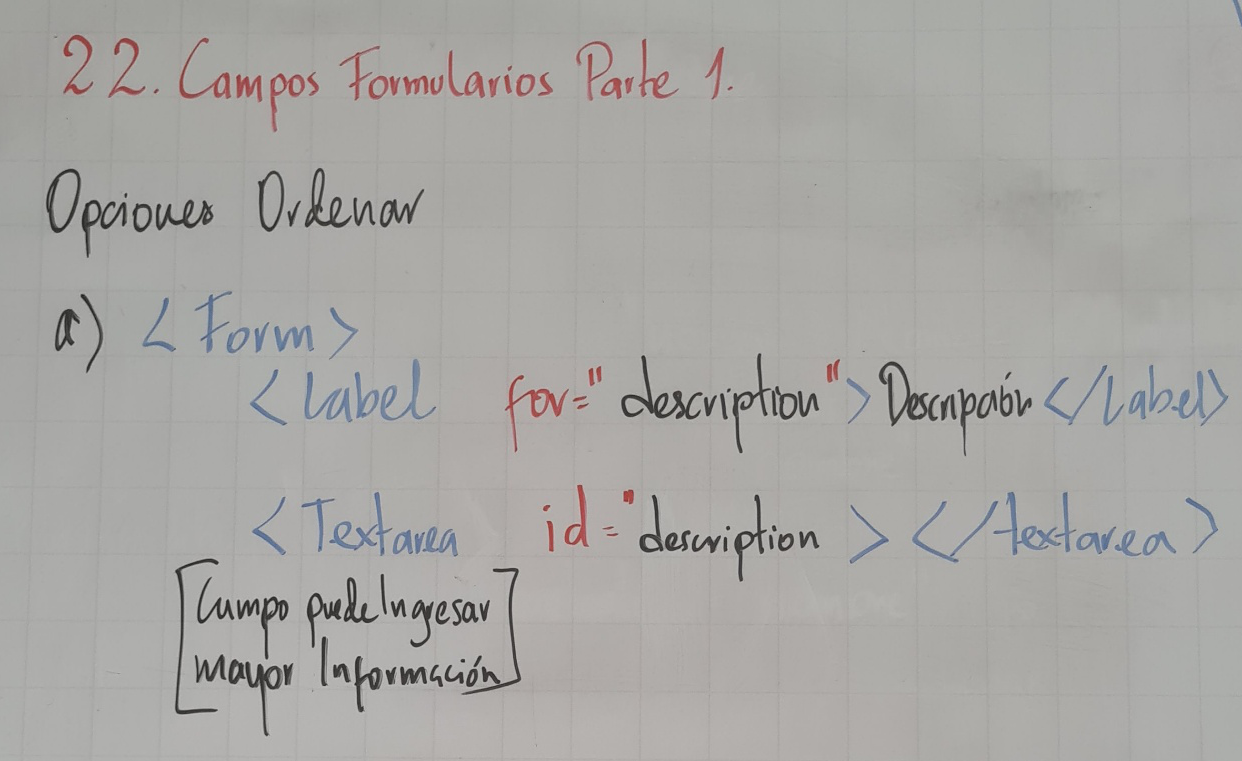 22. Campos Formularios Parte 1.
Opciones Ordenar
a) <Form>
<Label for="description">Descripción</Label>
<Textarea id="description></textarea>
[Campo puede Ingresar
mayor Información]